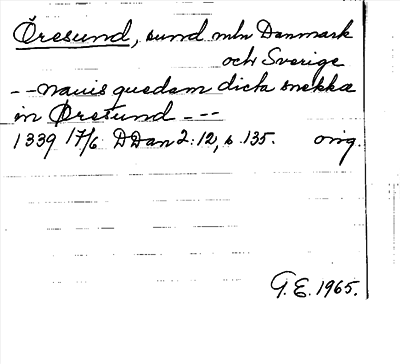 Öresund, sund mln Danmark
och Sverige
-- nauis quedam dicta snekka
in Ørstund ---
1339 17/6 DDan 2:12, s. 135. orig.
G.E. 1965.